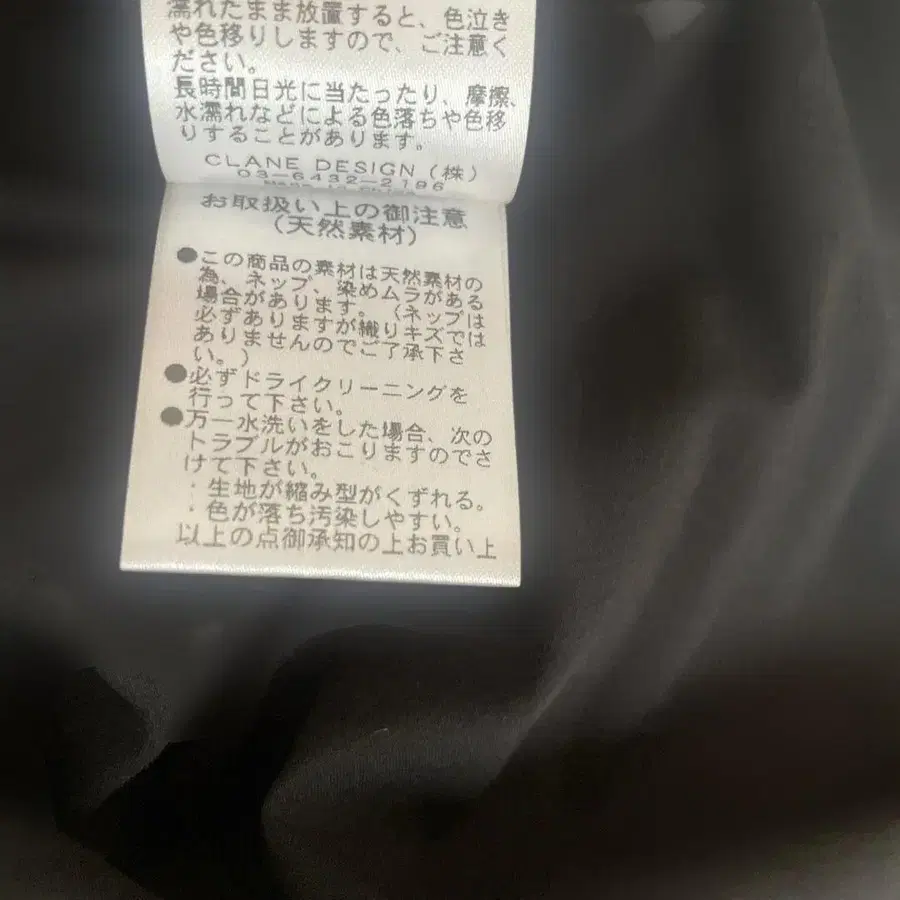 濡れたまま放置すると、色泣き
や色移りしますので、ご注意く
ださい。
長時間日光に当たったり、摩擦、
水濡れなどによる色落ちや色移
りすることがあります。
CLANE DESIGN(株)
03-6432-2196
お取扱い上の御注意
(天然素材)
●この商品の素材は天然素材の
為、ネップ、染めムラがある
場合があります。(ネップは
必ずありますが織りキズでは
ありませんのでご了承下さ
い。)
●必ずドライクリーニングを
行って下さい。
●万一水洗いをした場合、次の
トラブルがおこりますのでさ
けて下さい。
・生地が縮み型がくずれる。
・色が落ち汚染しやすい。
以上の点御承知の上お買い上